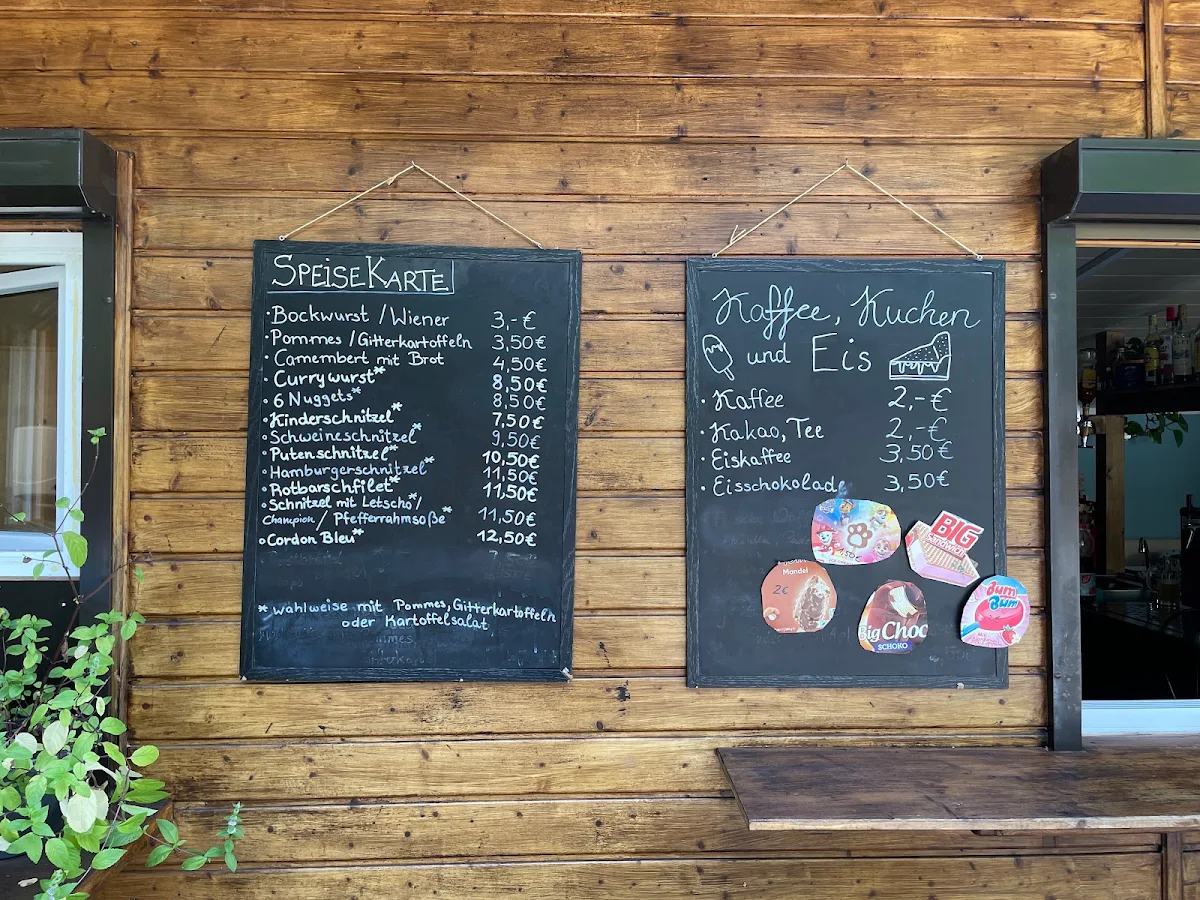 SPEISEKARTE
· Bockwurst / Wiener 3,-€
· Pommes / Gitterkartoffeln 3,50€
· Camembert mit Brot 4,50€
· Currywurst* 8,50€
· 6 Nuggets* 8,50€
· Kinderschnitzel* 7,50€
· Schweineschnitzel* 9,50€
· Putenschnitzel* 10,50€
· Hamburgerschnitzel* 11,50€
· Rotbarschfilet* 11,50€
· Schnitzel mit Letscho* /
Champion / Pfefferrahmsoße* 11,50€
· Cordon Bleu* 12,50€
* wahlweise mit Pommes, Gitterkartoffeln
oder Kartoffelsalat
Kaffee, Kuchen
und Eis
· Kaffee 2,-€
· Kakao, Tee 2,-€
· Eiskaffee 3,50€
· Eisschokolade 3,50€
BIG
Sandwich
Mandel
2€
Big Choc
SCHOKO
Bum
Bum